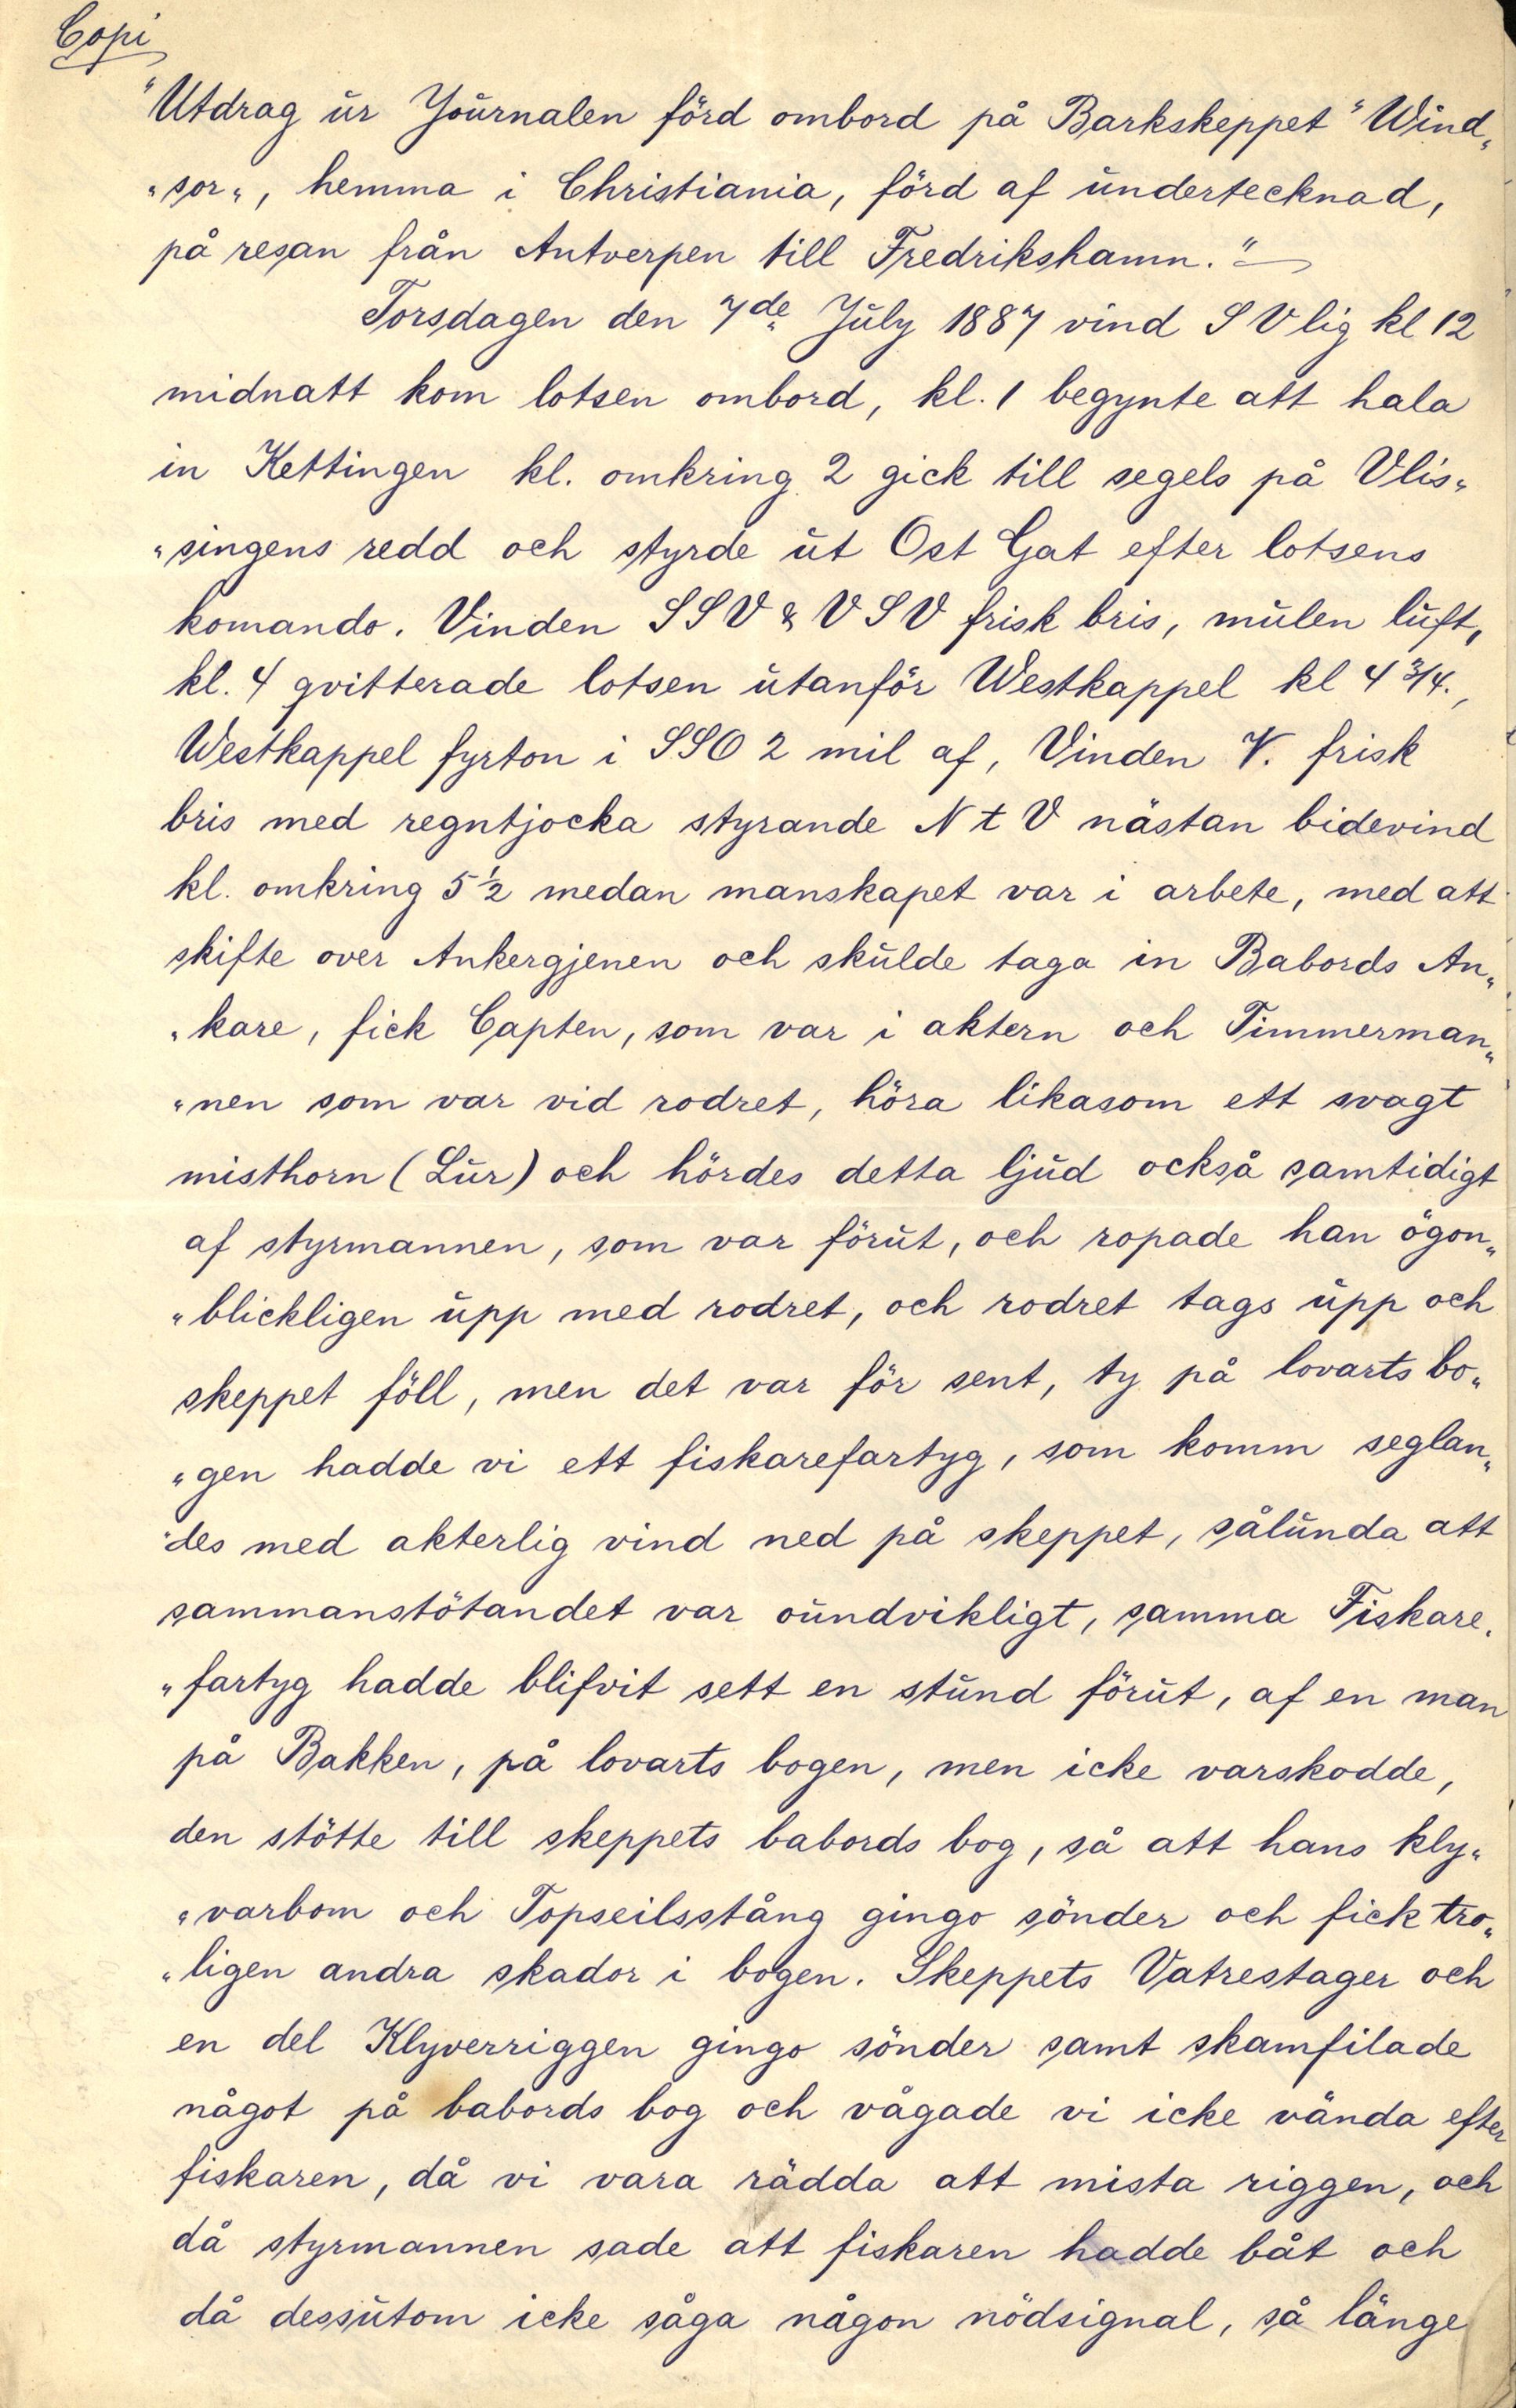 Copi
"Utdrag ur Journalen förd ombord på Barkskeppet "Wind„
„sor„, hemma i Christiania, förd af undertecknad,
på resan från Antverpen till Fredrikshamn."
Torsdagen den 7de July 1887 vind S V lig kl 12
midnatt kom lotsen ombord, kl. 1 begynte att hala
in Kettingen kl. omkring 2 gick till segels på Vlis„
„singens redd och styrde ut Ost Gat efter lotsens
komando. Vinden SSV & VSV frisk bris, mulen luft,
kl. 4 qvitterade lotsen utanför Westkappel kl 4 3/4.,
Westkappel fyrton i SSO 2 mil af, Vinden V. frisk
bris med regntjocka styrande N t V nästan bidevind
kl. omkring 5 1/2 medan manskapet var i arbete, med att
skifte over Ankergjenen och skulde taga in Babords An„
„kare, fick Capten, som var i aktern och Timmerman„
„nen som var vid rodret, höra likasom ett svagt
misthorn (Lur) och hördes detta ljud också samtidigt
af styrmannen, som var förut, och ropade han ögon„
„blickligen upp med rodret, och rodret tags upp och
skeppet föll, men det var för sent, ty på lovarts bo„
„gen hadde vi ett fiskarefartyg, som komm seglan„
„des med akterlig vind ned på skeppet, sålunda att
sammanstötandet var oundvikligt, samma Fiskare„
„fartyg hadde blifvit sett en stund förut, af en man
på Bakken, på lovarts bogen, men icke varskodde,
den stötte till skeppets babords bog, så att hans kly„
„varbom och Topseilsstång gingo sönder och fick tro„
„ligen andra skador i bogen. Skeppets Vatrestager och
en del Klyverriggen gingo sönder samt skamfilade
något på babords bog och vågade vi icke vända efter
fiskaren, då vi vara rädda att mista riggen, och
då styrmannen sade att fiskaren hadde båt och
då dessutom icke såga någon nödsignal, så länge